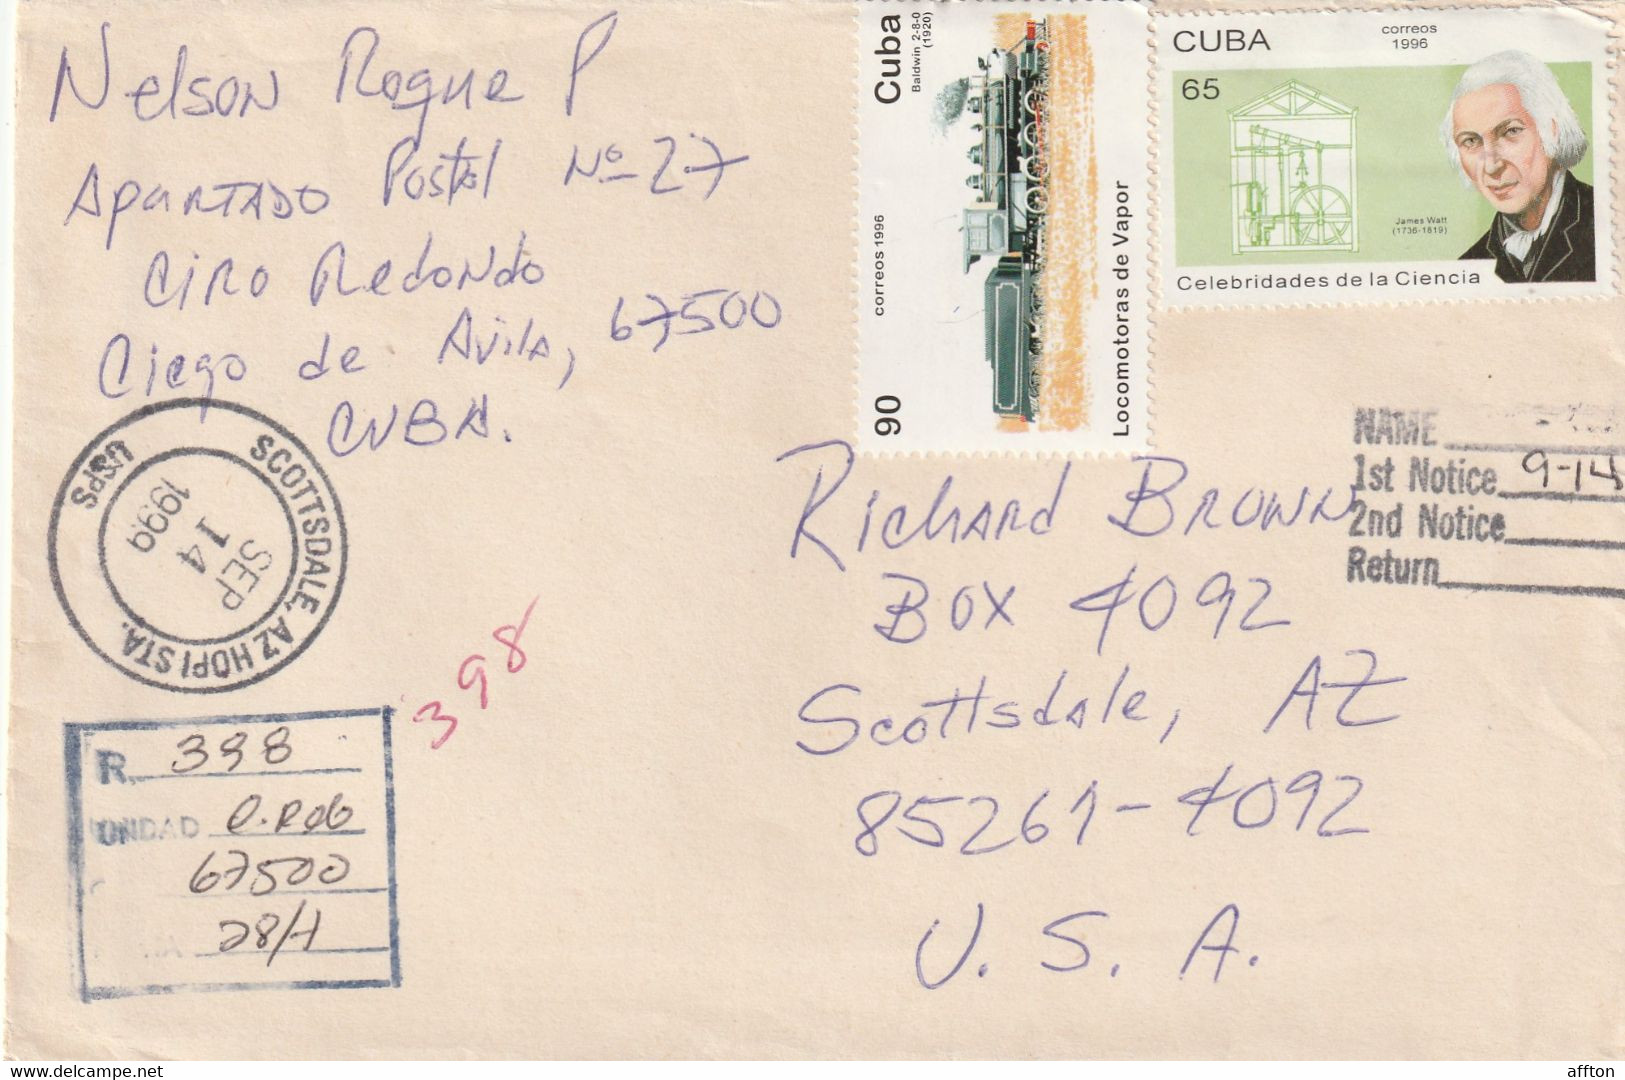 Nelson Roque P
Apartado Postal Nº 27
Ciro Redondo
Ciego de Avila, 67500
CUBA.
Cuba
Baldwin 2-8-0
(1920)
correos 1996
90
Locomotoras de Vapor
CUBA
correos
1996
65
James Watt
(1736-1819)
Celebridades de la Ciencia
NAME
1st Notice 9-14
2nd Notice
Return
SCOTTSDALE, AZ HOPI STA.
USPS
SEP
14
1999
398
R. 398
UNIDAD
67500
Richard Brown
Box 4092
Scottsdale, AZ
85261-4092
U. S. A.
www.delcampe.net
affton